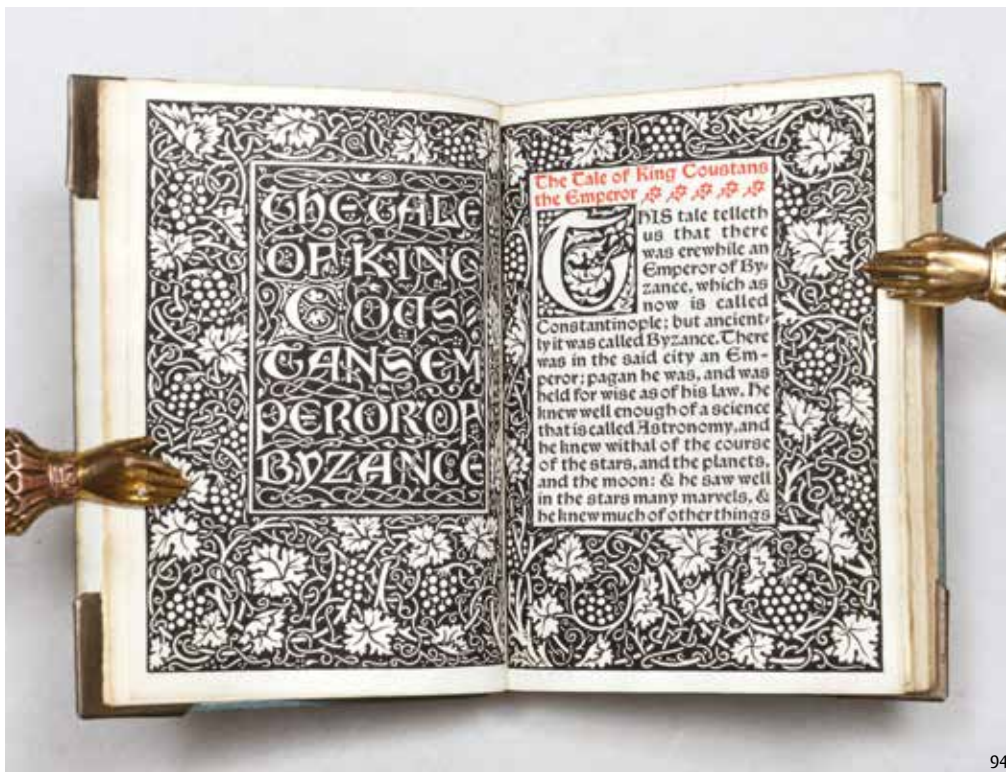 THE TALE
OF KING
COUS-
TANS EM
PEROR OF
BYZANCE
The Tale of King Coustans
the Emperor
THIS tale telleth
us that there
was erewhile an
Emperor of By-
zance, which as
now is called
Constantinople; but ancient-
ly it was called Byzance. There
was in the said city an Em-
peror; pagan he was, and was
held for wise as of his law. He
knew well enough of a science
that is called Astronomy, and
he knew withal of the course
of the stars, and the planets,
and the moon: & he saw well
in the stars many marvels, &
he knew much of other things
94